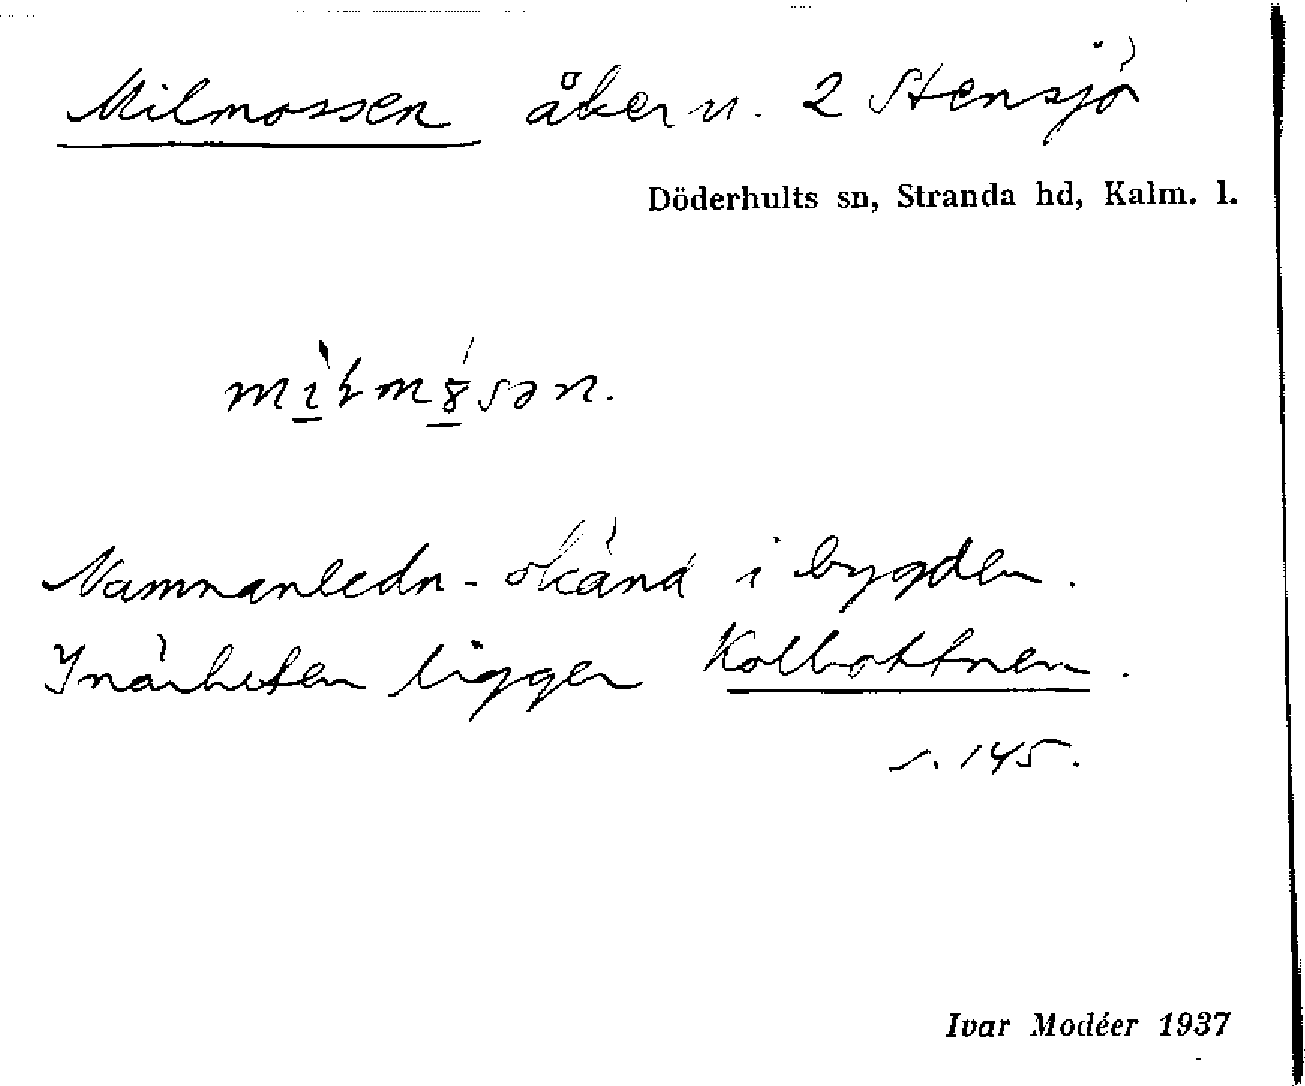 Milmossen åker u. 2 Stensjö
Döderhults sn, Stranda hd, Kalm. l.
Namnanledn. okänd i bygden.
I närheten ligger Kolbottnen.
s. 145.
Ivar Modéer 1937